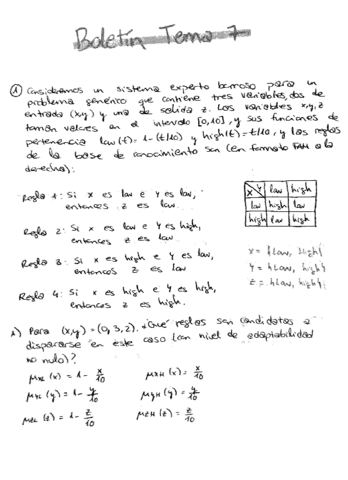 Boletín Tema 7
① Consideremos un sistema experto borroso para un
problema genérico que contiene tres variables, dos de
entrada (x,y) y una de salida z. Las variables x,y,z
toman valores en el intervalo [0,10], y sus funciones de
pertenencia law(t)=1-(t/10) y high(t)=t/10, y las reglas
de la base de conocimiento son (en formato FAM a la
derecha):
Regla 1: Si x es law e y es law,
entonces z es law.
Regla 2: Si x es law e y es high,
entonces z es high.
Regla 3: Si x es high e y es law,
entonces z es law
Regla 4: Si x es high e y es high,
entonces z es high.
x y law high
law high law
high law high
x = {Law, High}
y = {Law, high}
z = {Law, high}
A) Para (x,y)=(0,3,2). ¿Qué reglas son candidatas a
dispararse en este caso (con nivel de adaptabilidad
no nulo)?
μxL (x) = 1 - x/10 μxH (x) = x/10
μyL (y) = 1 - y/10 μyH (y) = y/10
μzL (z) = 1 - z/10 μzH (z) = z/10